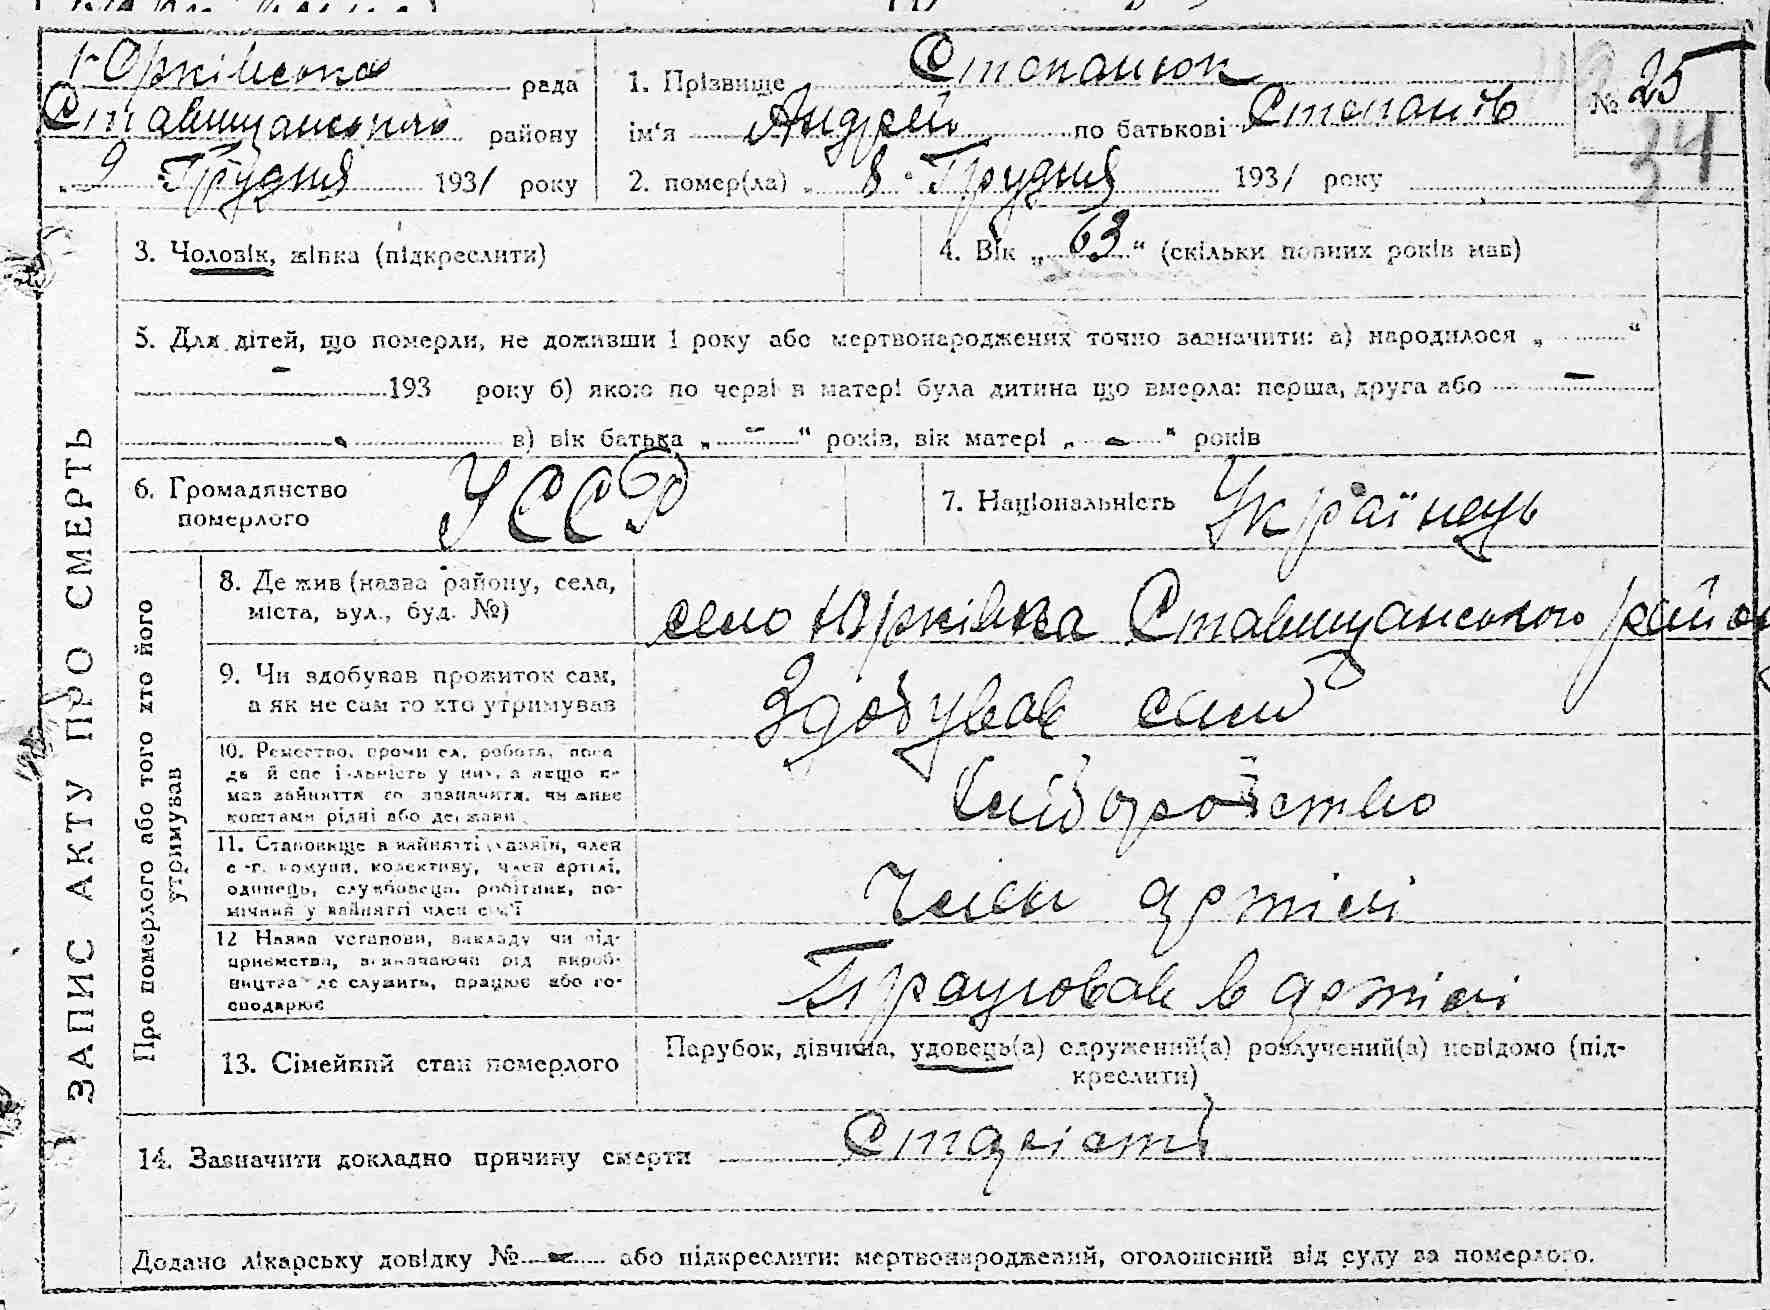 Юрківська рада
Ставищанського району
„ 9 " Грудня 1931 року
1. Прізвище Степанюк
ім'я Андрей по батькові Степанів
2. помер(ла) „ 8 " Грудня 1931 року
№ 25
34
ЗАПИС АКТУ ПРО СМЕРТЬ
3. Чоловік, жінка (підкреслити)
4. Вік „ 63 " (скільки повних років мав)
5. Для дітей, що померли, не доживши 1 року або мертвонароджених точно зазначити: а) народилося „ "
- 193 року б) якою по черзі в матері була дитина що вмерла: перша, друга або -
- в) вік батька „ - " років, вік матері „ - " років
6. Громадянство
померлого
УССР
7. Національність Українець
Про померлого або того хто його
утримував
8. Де жив (назва району, села,
міста, вул., буд. №)
село Юрківка Ставищанського
9. Чи здобував прожиток сам,
а як не сам то хто утримував
Здобував сам
10. Ремество, промисел, робота, поса
да й спеціяльність у них, а якщо не
мав зайняття то зазначити, чи живе
коштами рідні або держави
11. Становище в зайнятті (хазяїн, член
с-г. комуни, колективу, член артілі,
одинець, службовець, робітник, по-
мічний у зайнятті член сем'ї
Член артілі
12 Назва установи, закладу чи під-
приємства, визначаючи рід вироб-
ництва де служить, працює або го-
сподарює
Працював в артілі
13. Сімейний стан померлого
Парубок, дівчина, удовець(а) одружений(а) розлучений(а) невідомо (під-
креслити)
14. Зазначити докладно причину смерти Старість
Додано лікарську довідку № - або підкреслити: мертвонароджений, оголошений від суду за померлого.